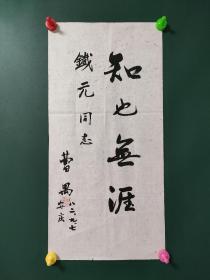 知也無涯
鐵元同志
曹禺
八六、九、七
安庆